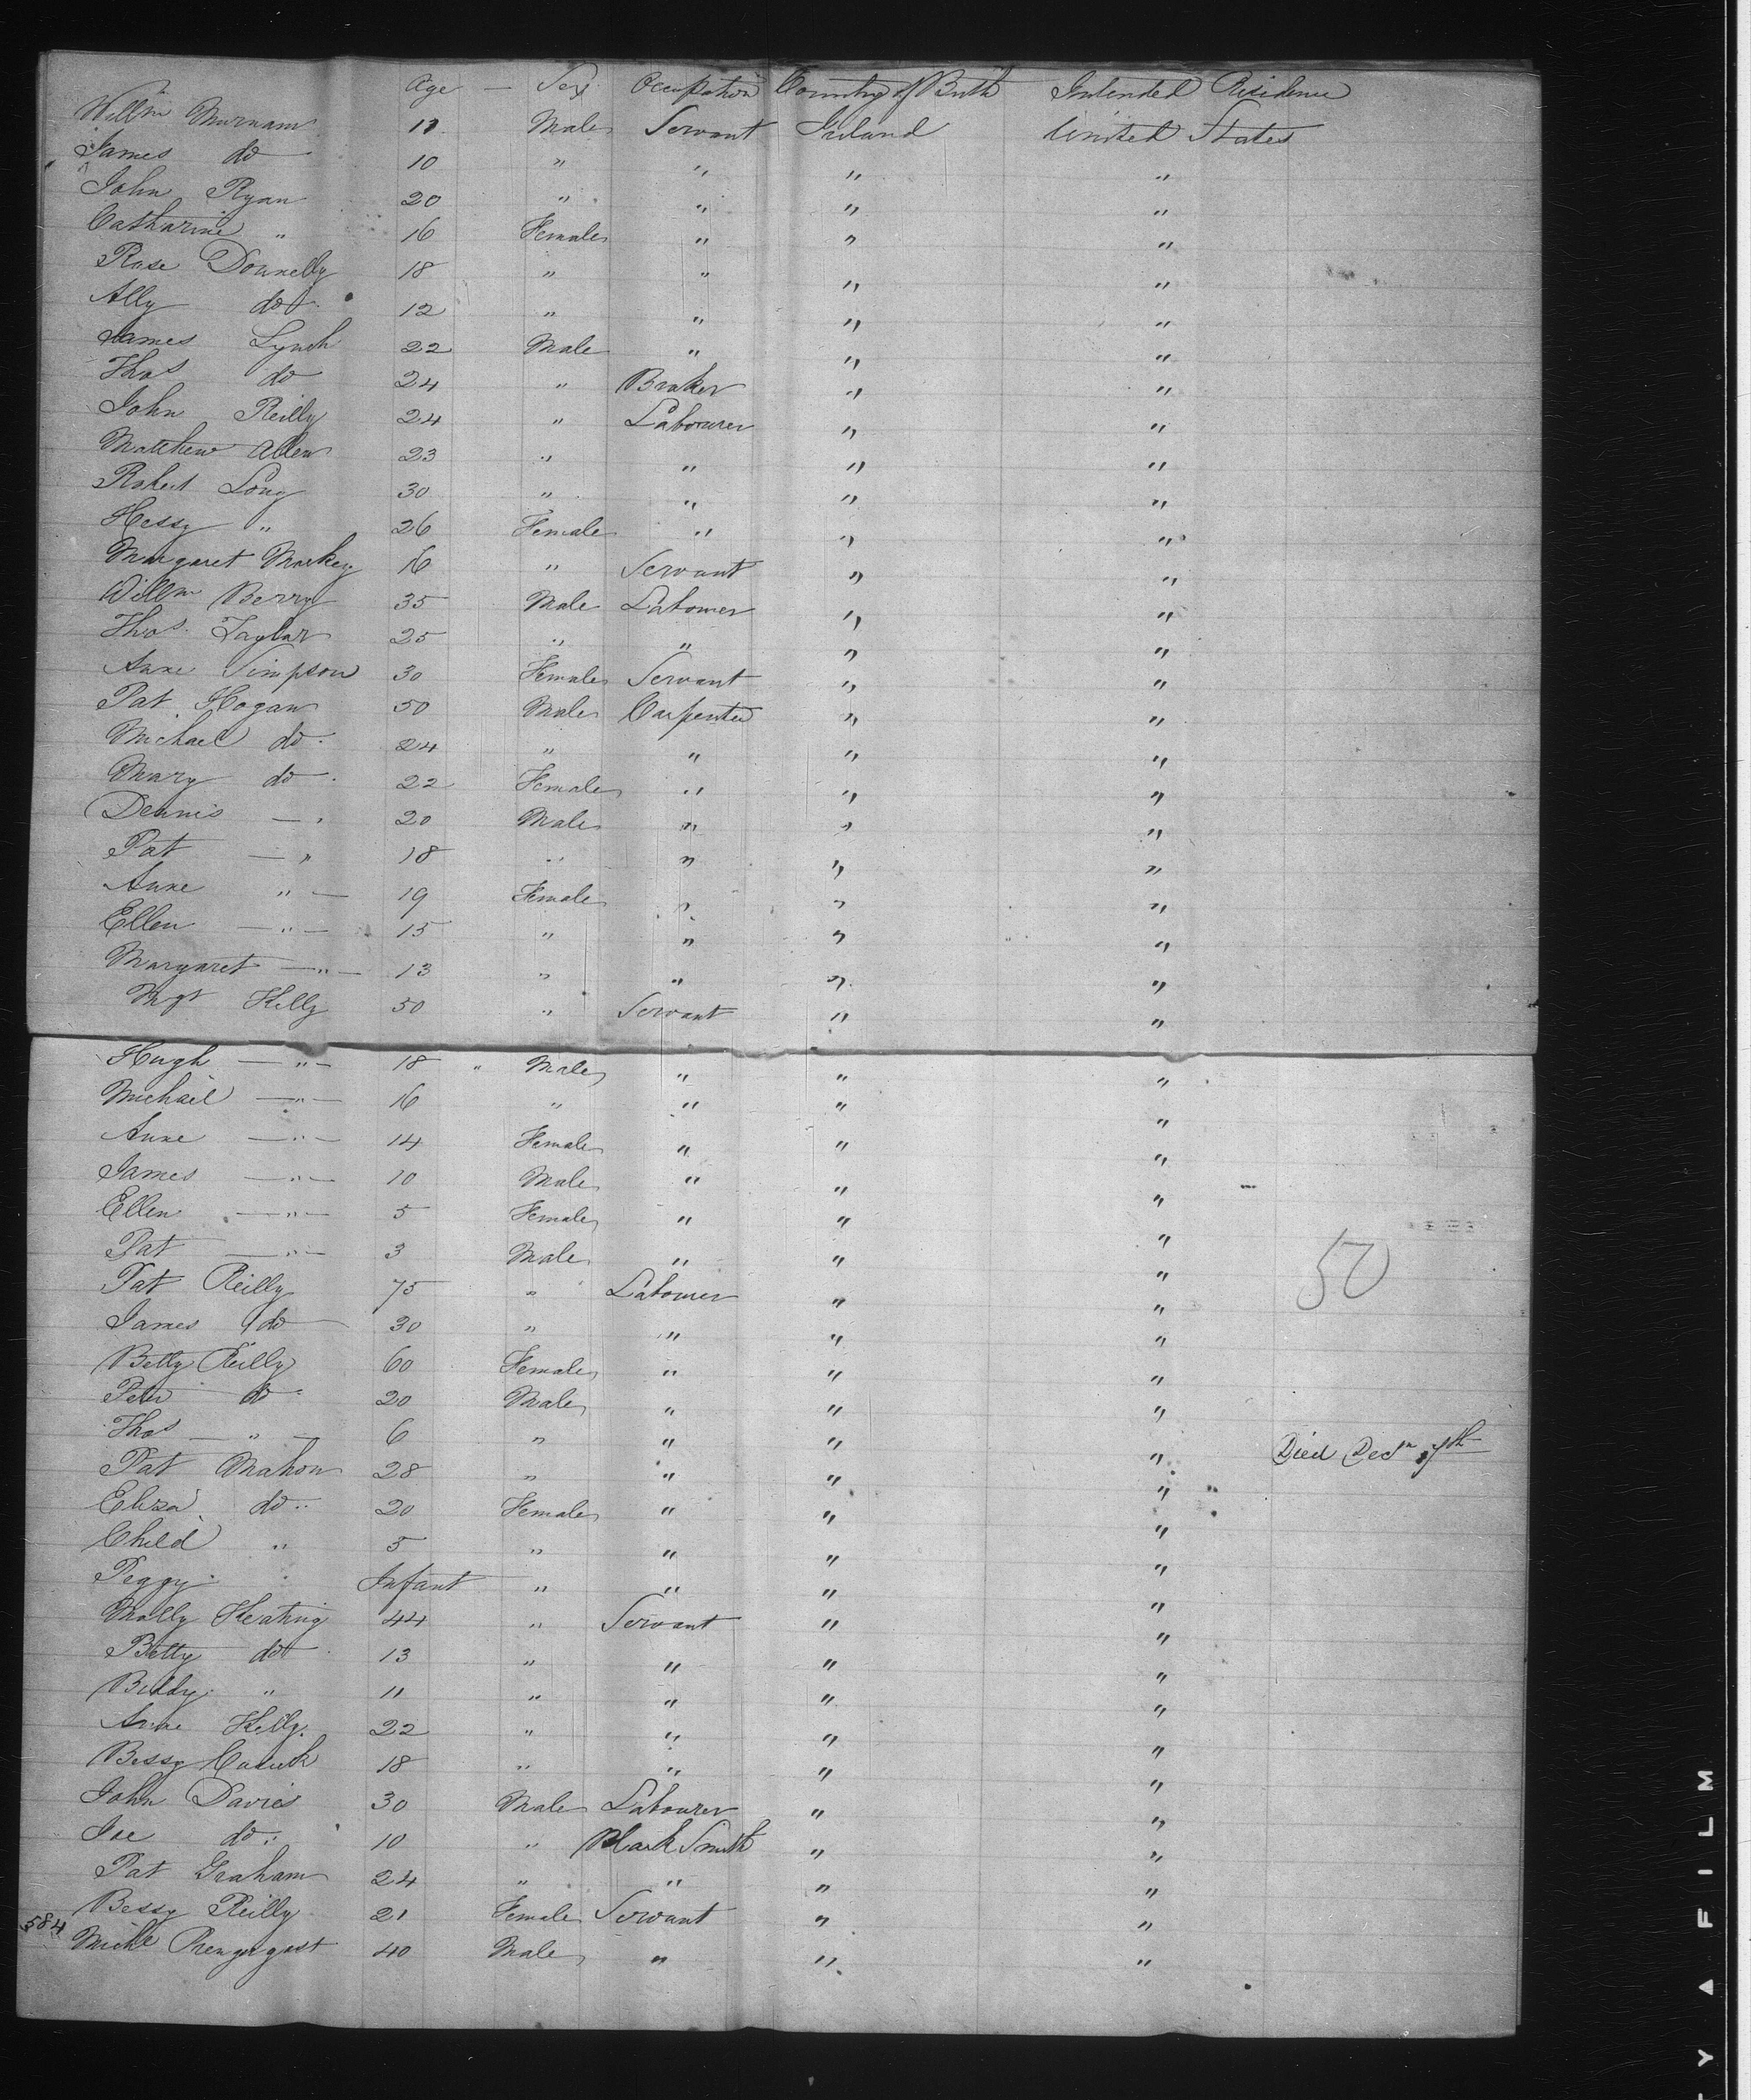 Age — Sex Occupation Country of Birth Intended Residence
Willm Murnam 11 Male Servant Ireland United States
James do 10 " " " "
John Ryan 20 " " " "
Catharine " 16 Female " " "
Rose Donnelly 18 " " " "
Ally do 12 " " " "
James Lynch 22 Male " " "
Thos do 24 " Braker " "
John Reilly 24 " Labourer " "
Matthew Allen 23 " " " "
Robert Long 30 " " " "
Hessy " 26 Female " " "
Margaret Markey 16 " Servant " "
Willm Berry 35 Male Labourer " "
Thos. Taylor 25 " " " "
Anne Simpson 30 Female Servant " "
Pat Hogan 50 Male Carpenter " "
Michael do. 24 " " " "
Mary do. 22 Female " " "
Dennis — " 20 Male " " "
Pat — " 18 " " " "
Anne " — 19 Female " " "
Ellen — " — 15 " " " "
Margaret — " — 13 " " " "
Mgt Kelly 50 " Servant " "
Hugh — " — 18 " Male " " "
Michael — " — 16 " " " "
Anne — " — 14 Female " " "
James — " — 10 Male " " "
Ellen — " — 5 Female " " "
Pat — " — 3 Male " " "
50
Pat Reilly 75 " Labourer " "
James do 30 " " " "
Betty Reilly 60 Female " " "
Peter do 20 Male " " "
Thos — " — 6 " " " " Died Decr 7th
Pat Mahon 28 " " " "
Eliza do. 20 Female " " "
Child " 5 " " " "
Peggy Infant " " " "
Molly Keating 44 " Servant " "
Betty do 13 " " " "
Biddy " 11 " " " "
Anne Kelly. 22 " " " "
Bessy 18 " " " "
John Davies 30 Male Labourer " "
Joe do. 10 " Black Smith " "
Pat Graham 24 " " " "
Bessy Reilly 21 Female Servant " "
584 Michl 40 Male " " "
FILM